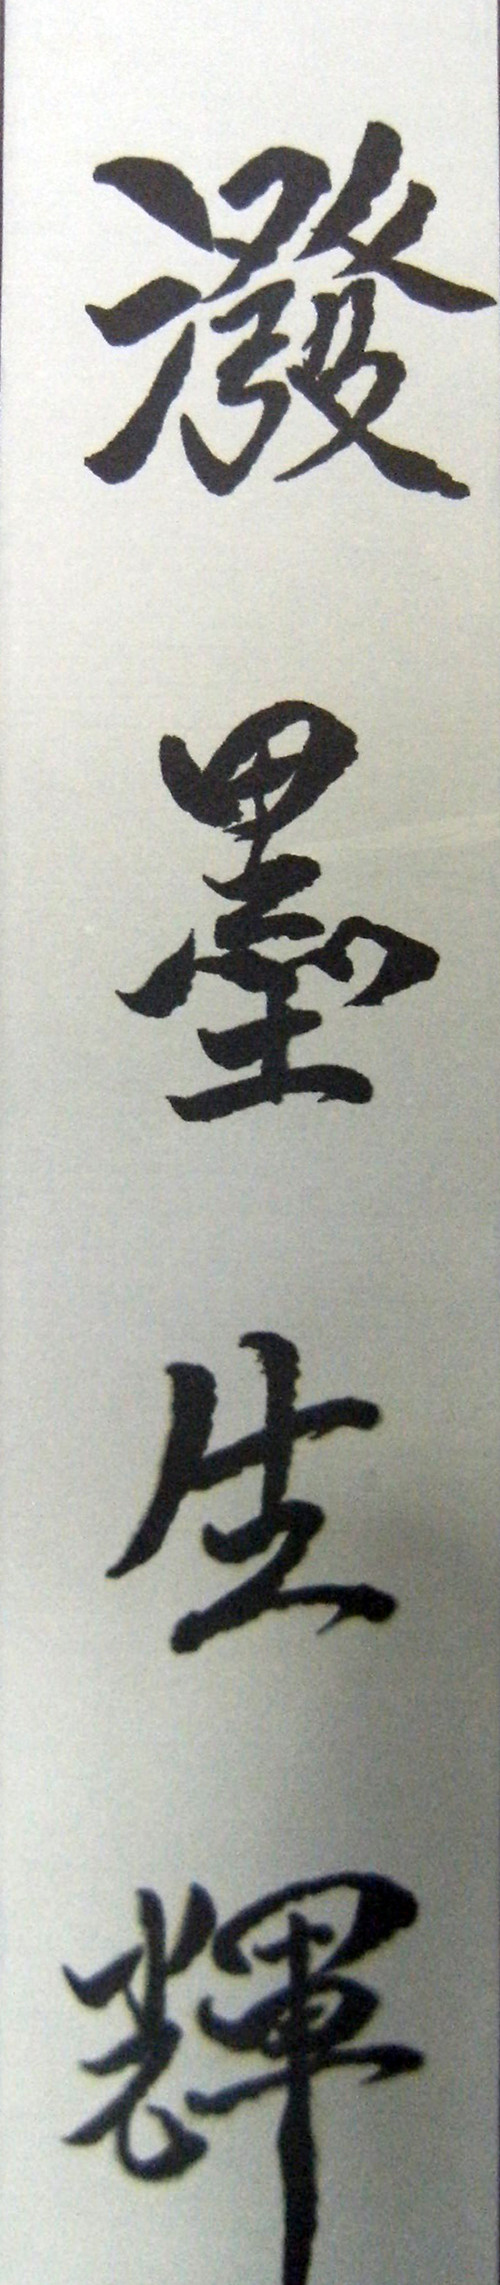 潑墨生輝